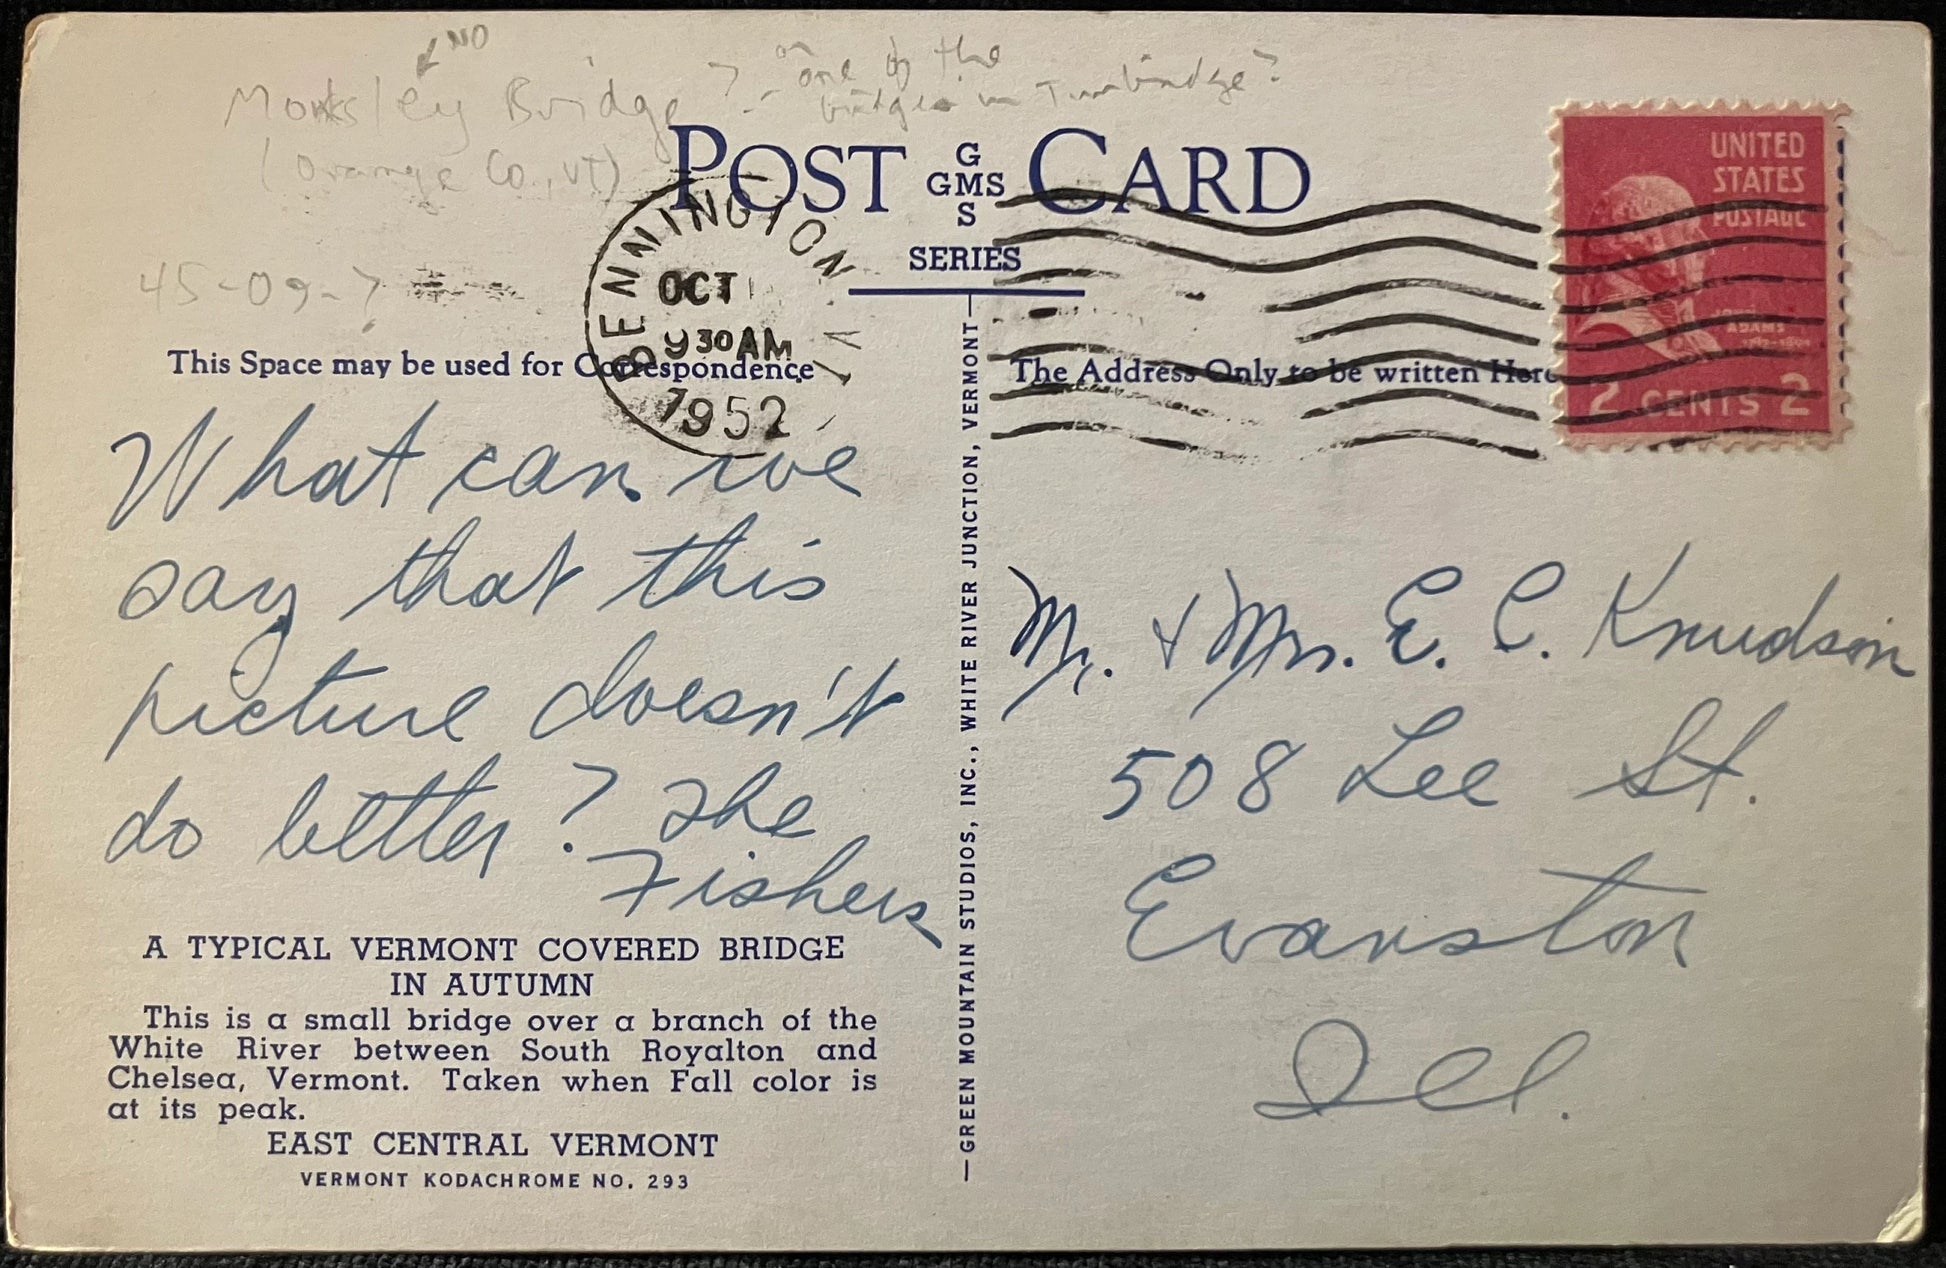 NO
Monksley Bridge? - or one of the
bridges in Tunbridge?
(Orange Co, VT)
POST CARD
G
GMS
S
SERIES
45-09-?
BENNINGTON
OCT
930AM
1952
UNITED
STATES
POSTAGE
ADAMS
2 CENTS 2
This Space may be used for Correspondence
The Address Only to be written Here
What can we
say that this
picture doesn't
do better? The
Fishers
Mr. & Mrs. E. C. Knudson
508 Lee St.
Evanston
Ill.
—GREEN MOUNTAIN STUDIOS, INC., WHITE RIVER JUNCTION, VERMONT—
A TYPICAL VERMONT COVERED BRIDGE
IN AUTUMN
This is a small bridge over a branch of the
White River between South Royalton and
Chelsea, Vermont. Taken when Fall color is
at its peak.
EAST CENTRAL VERMONT
VERMONT KODACHROME NO. 293